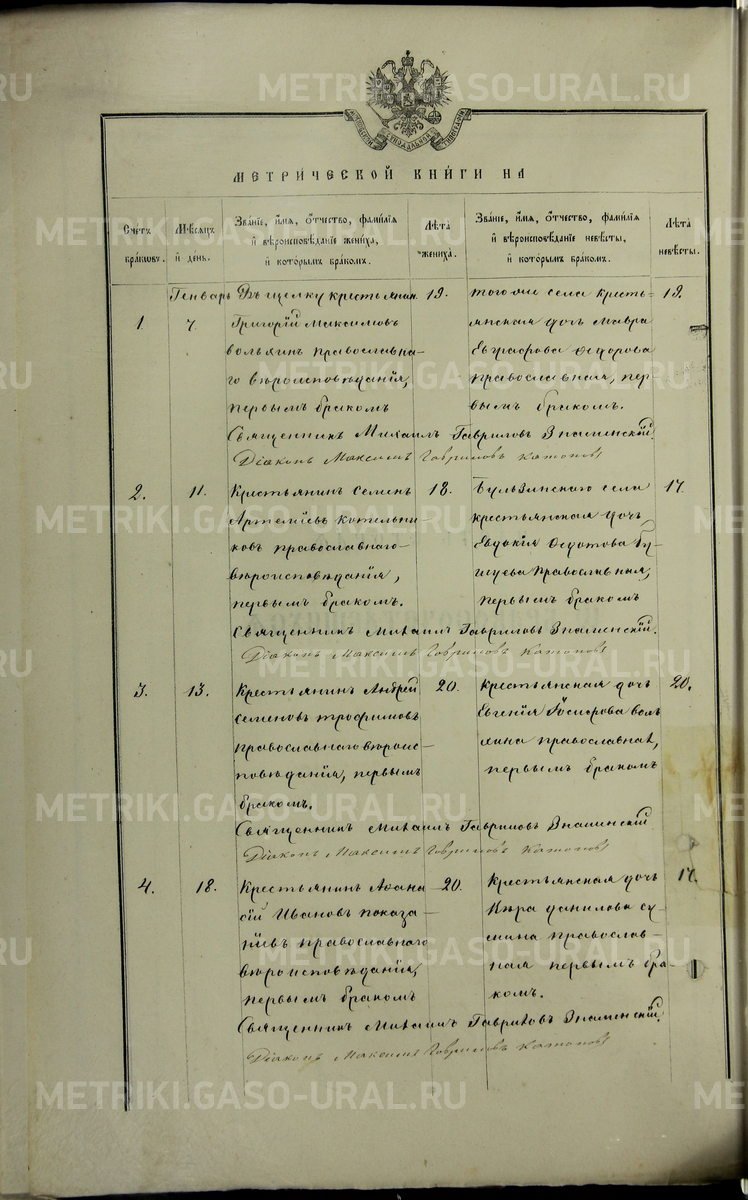 МЕТРИЧЕСКОЙ КНИГИ НА
Счетъ браковъ.
Мѣсяцъ и день.
Званіе, имя, отчество, фамилія и вѣроисповѣданіе жениха, и которымъ бракомъ.
Лѣта жениха.
Званіе, имя, отчество, фамилія и вѣроисповѣданіе невѣсты, и которымъ бракомъ.
Лѣта невѣсты.
1.
Генварь
7
крестьянин
Григорій Максимовъ
вольхинъ православна-
го вѣроисповѣданія,
первымъ бракомъ
19.
того же села кресть-
янская дочь Мавра
Евграфова Ѳедорова
православная, пер-
вымъ бракомъ.
19.
Священникъ Михаилъ Гавриловъ Знаменскій
Діаконъ Максимъ Гавриловъ
2.
11.
Крестьянинъ Семенъ
Артеміевъ Котельни-
ковъ православнаго
вѣроисповѣданія,
первымъ бракомъ.
18.
села
крестьянская дочь
Евдокія Ѳедотова
православная,
первымъ бракомъ
17.
Священникъ Михаилъ Гавриловъ Знаменскій.
Діаконъ Максимъ Гавриловъ
3.
13.
Крестьянинъ Андрей
Семеновъ трофимовъ
православнаго вѣроис-
повѣданія, первымъ
бракомъ.
20.
крестьянская дочь
Евгенія
православная,
первымъ бракомъ
20.
Священникъ Михаилъ Гавриловъ Знаменскій
Діаконъ Максимъ Гавриловъ
4.
18.
Крестьянинъ Аѳана
сій Ивановъ показа-
ніевъ православнаго
вѣроисповѣданія,
первымъ бракомъ
20.
Крестьянская дочь
Кѵра данилова
православ-
ная первымъ бра-
комъ.
17.
Священникъ Михаилъ Гавриловъ Знаменскій.
Діаконъ Максимъ Гавриловъ
METRIKI.GASO-URAL.RU